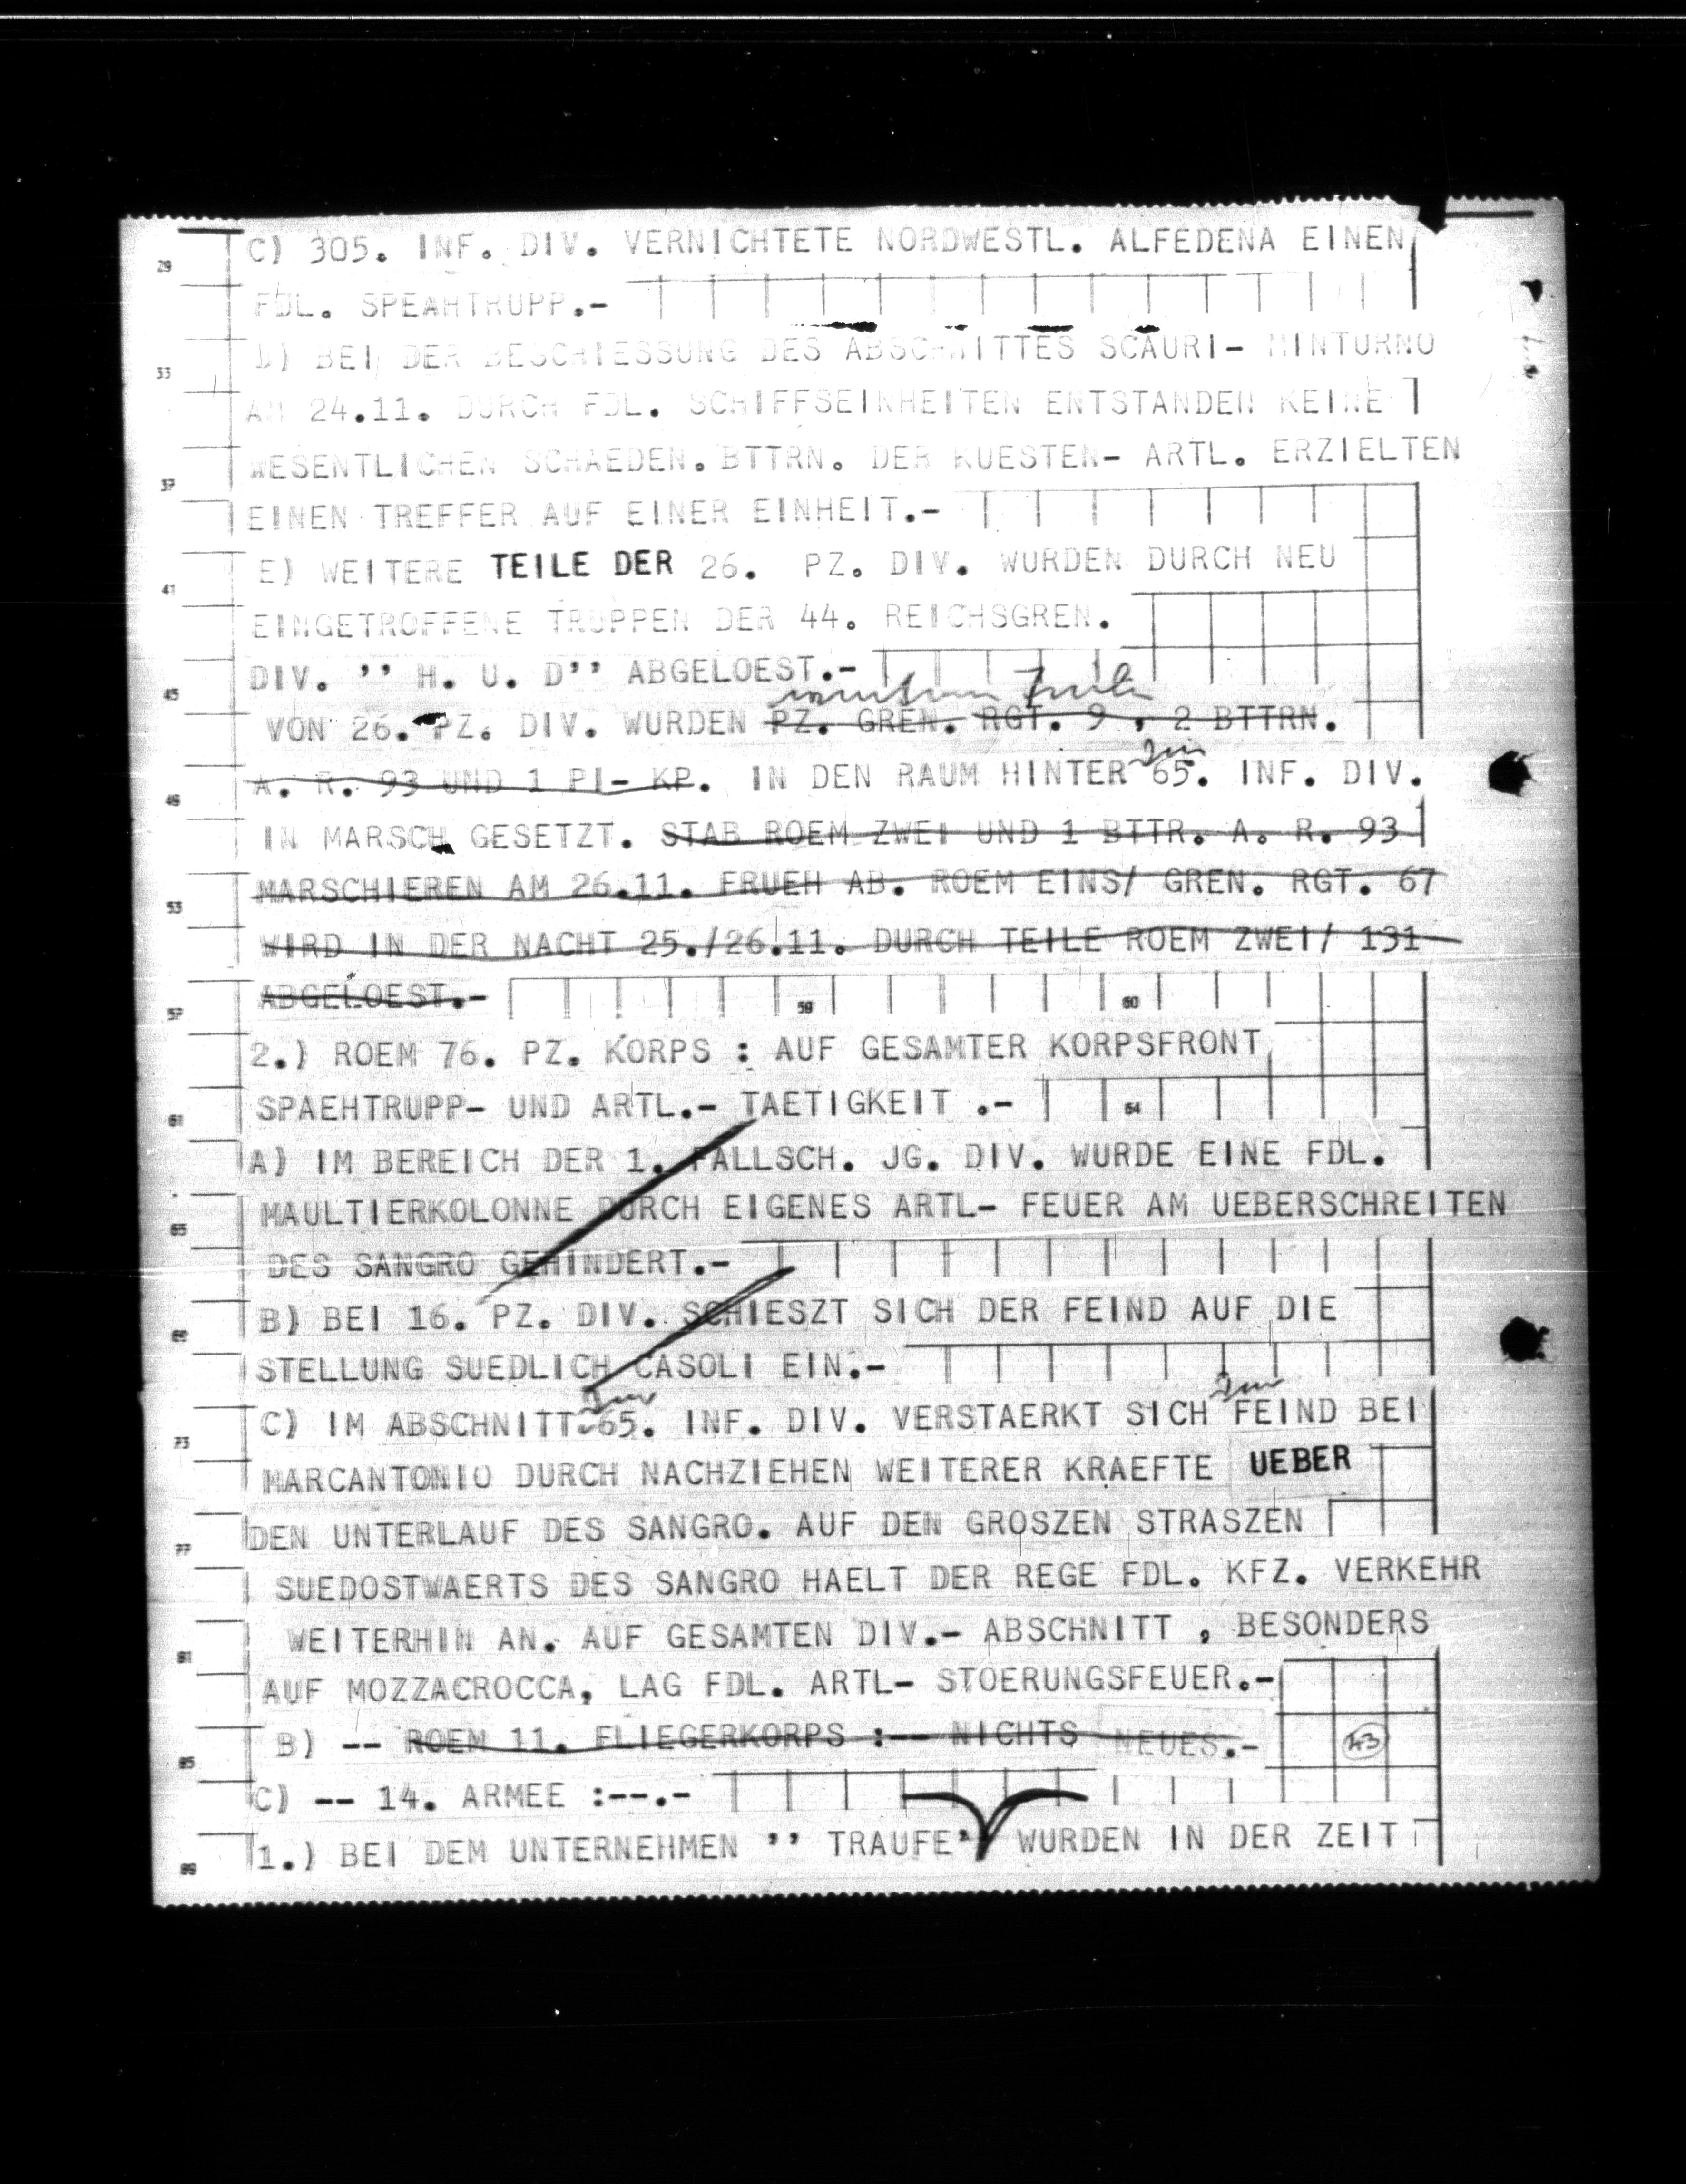 C) 305. INF. DIV. VERNICHTETE NORDWESTL. ALFEDENA EINEN
29
FDL. SPEAHTRUPP.-
D) BEI DER BESCHIESSUNG DES ABSCHNITTES SCAURI- MINTURNO
33
AM 24.11. DURCH FDL. SCHIFFSEINHEITEN ENTSTANDEN KEINE
WESENTLICHEN SCHAEDEN. BTTRN. DER KUESTEN- ARTL. ERZIELTEN
37
EINEN TREFFER AUF EINER EINHEIT.-
E) WEITERE TEILE DER 26. PZ. DIV. WURDEN DURCH NEU
41
EINGETROFFENE TRUPPEN DER 44. REICHSGREN.
DIV. '' H. U. D'' ABGELOEST.-
45
VON 26. PZ. DIV. WURDEN PZ. GREN. RGT. 9 , 2 BTTRN.
A. R. 93 UND 1 PI- KP. IN DEN RAUM HINTER 65. INF. DIV.
49
IN MARSCH GESETZT. STAB ROEM ZWEI UND 1 BTTR. A. R. 93
MARSCHIEREN AM 26.11. FRUEH AB. ROEM EINS/ GREN. RGT. 67
53
WIRD IN DER NACHT 25./26.11. DURCH TEILE ROEM ZWEI/ 131
ABGELOEST.- 59 60
57
2.) ROEM 76. PZ. KORPS : AUF GESAMTER KORPSFRONT
SPAEHTRUPP- UND ARTL.- TAETIGKEIT .- 64
61
A) IM BEREICH DER 1. FALLSCH. JG. DIV. WURDE EINE FDL.
MAULTIERKOLONNE DURCH EIGENES ARTL- FEUER AM UEBERSCHREITEN
65
DES SANGRO GEHINDERT.-
B) BEI 16. PZ. DIV. SCHIESZT SICH DER FEIND AUF DIE
69
STELLUNG SUEDLICH CASOLI EIN.-
C) IM ABSCHNITT 65. INF. DIV. VERSTAERKT SICH FEIND BEI
73
MARCANTONIO DURCH NACHZIEHEN WEITERER KRAEFTE UEBER
DEN UNTERLAUF DES SANGRO. AUF DEN GROSZEN STRASZEN
77
SUEDOSTWAERTS DES SANGRO HAELT DER REGE FDL. KFZ. VERKEHR
WEITERHIN AN. AUF GESAMTEN DIV.- ABSCHNITT , BESONDERS
81
AUF MOZZACROCCA, LAG FDL. ARTL- STOERUNGSFEUER.-
B) -- ROEM 11. FLIEGERKORPS :-- NICHTS NEUES.- 43
85
C) -- 14. ARMEE :--.-
1.) BEI DEM UNTERNEHMEN '' TRAUFE'' WURDEN IN DER ZEIT
89